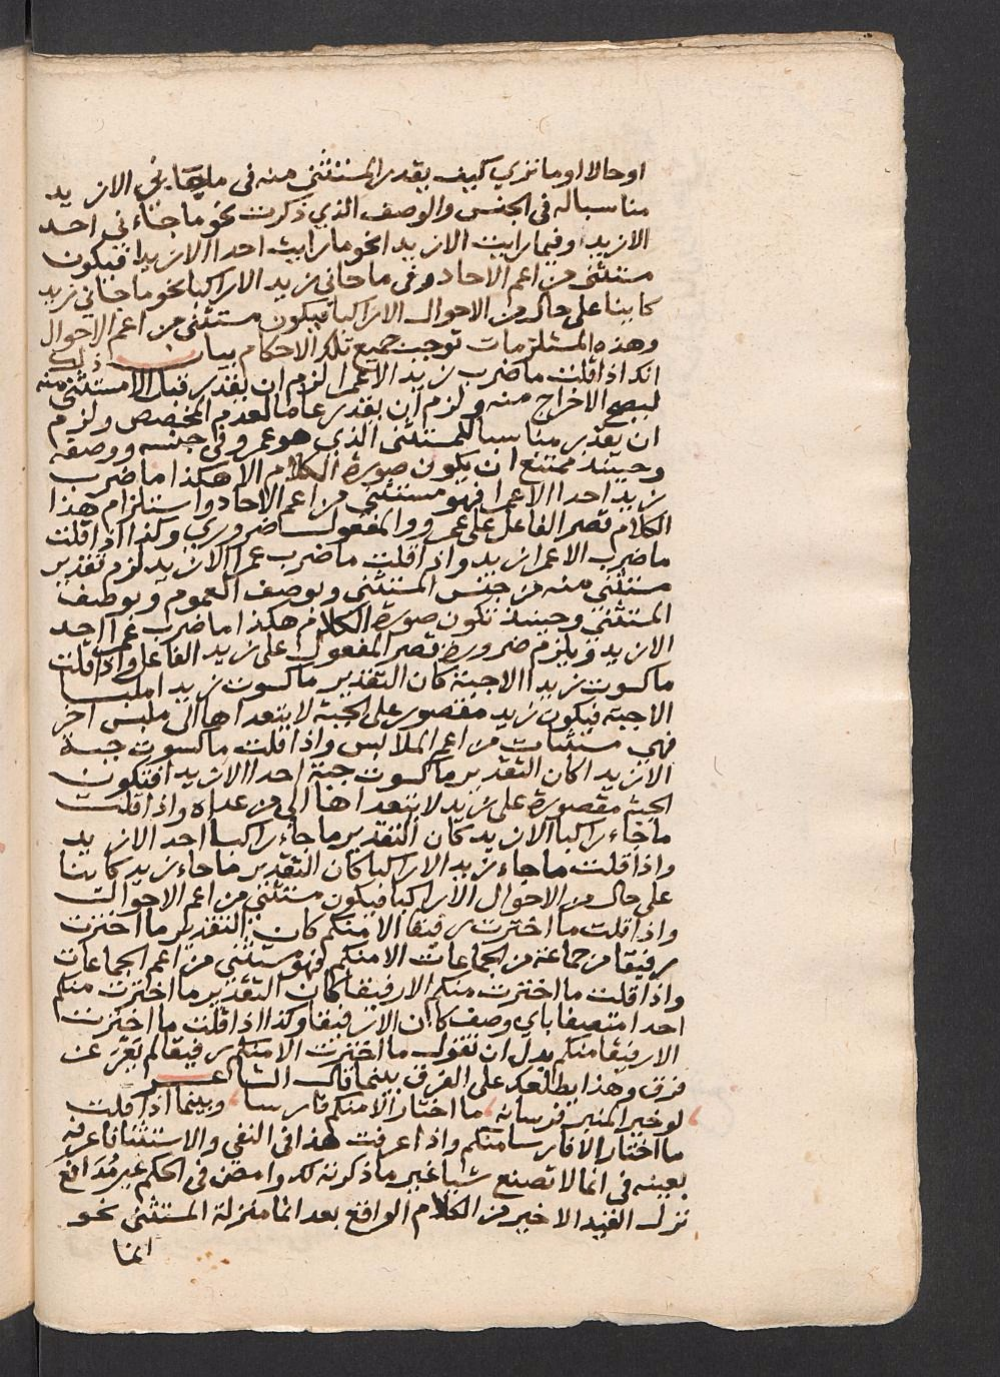 او حالا او ما تري كيف يقدر المستثني منه في ما جاني الا زيد
مناسبا له في الجنس والوصف الذي ذكرت نحو ما جاءني احد
الا زيد وفيما رايت الا زيدا نحو ما رايت احدا الا زيدا فيكون
مستثني من اعم الاحاد وفي ما جاني زيد الا راكبا نحو ما جاني زيد
كاينا على حال من الاحوال الا راكبا فيكون مستثني من اعم الاحوال
وهذه المستلزمات توجب جميع تلك الاحكام بيان ذلك
انك اذا قلت ما ضرب زيد الا عمرا لزم ان يقدر قبل الا مستثني منه
ليصح الاخراج منه ولزم ان يقدر عاما لعدم المخصص ولزم
ان يقدر مناسبا للمستثني الذي هو عمرو في جنسه ووصفه
وحينئذ ممتنع ان يكون صورة الكلام الا هكذا ما ضرب
زيد احدا الا عمرا فهو مستثني من اعم الاحاد واستلزام هذا
الكلام قصر الفاعل على عمرو والمفعول ضروري وكذا اذا قلت
ما ضرب الا عمرا زيد واذا قلت ما ضرب عمرا الا زيد لزم تقدير
مستثني منه من جنس المستثني وبوصف العموم وبوصف
المستثني وحينئذ تكون صورة الكلام هكذا ما ضرب عمرا احد
الا زيد ويلزم ضرورة قصر المفعول على زيد الفاعل واذا قلت
ما كسوت زيدا الا جبة كان التقدير ما كسوت زيدا ملبسا
الا جبة فيكون زيد مقصورا على الجبة لا يتعداها الى ملبس اخر
فهي مستثنات من اعم الملابس واذا قلت ما كسوت جبة
الا زيدا كان التقدير ما كسوت جبة احدا الا زيدا فتكون
الجبة مقصورة على زيد لا يتعداها الي من عداه واذا قلت
ما جاء راكبا الا زيد كان التقدير ما جاء راكبا احد الا زيد
واذا قلت ما جاء زيد الا راكبا كان التقدير ما جاء زيد كاينا
على حال من الاحوال الا راكبا فيكون مستثني من اعم الاحوال
واذا قلت ما اخترت رفيقا الا منكم كان التقدير ما اخترت
رفيقا من جماعة من الجماعات الا منكم فهو مستثني من اعم الجماعات
واذا قلت ما اخترت منكم الا رفيقا كان التقدير ما اخترت منكم
احدا متصفا باي وصف كان الا رفيقا وكذا اذا قلت ما اخترت
الا رفيقا منكم بدل ان تقول ما اخترت الا منكم رفيقا لم يعر عن
فرق وهذا يطلعك على الفرق بينما قال الشاعر
لو خير المنبر فرسانه ما اختار الا منكم فارسا وبينما اذا قلت
ما اختار الا فارسا منكم واذا عرفت هذا في النفي والاستثنا فاعرفه
بعينه في انما لا تصنع شيا غير ما ذكرته لك وامض في الحكم غير مدافع
نزل القيد الاخير من الكلام الواقع بعد انما منزلة المستثني نحو
انما